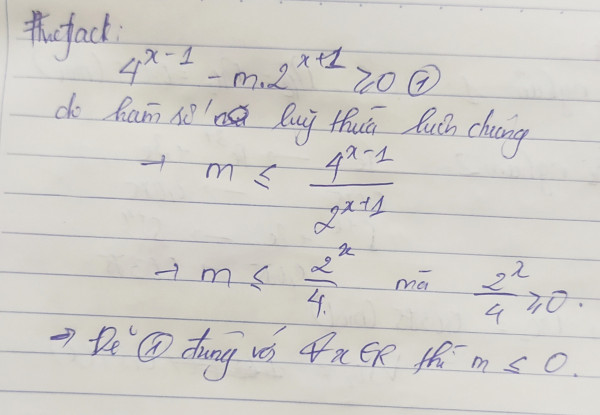 #hocfact:
4^{x-1} - m.2^{x+1} ≥ 0 ①
do hàm số luỹ thừa luôn
→ m ≤ \frac{4^{x-1}}{2^{x+1}}
→ m ≤ \frac{2^x}{4.} mà \frac{2^x}{4} ≥ 0.
→ Để ① đúng với ∀x∈R thì m ≤ 0.